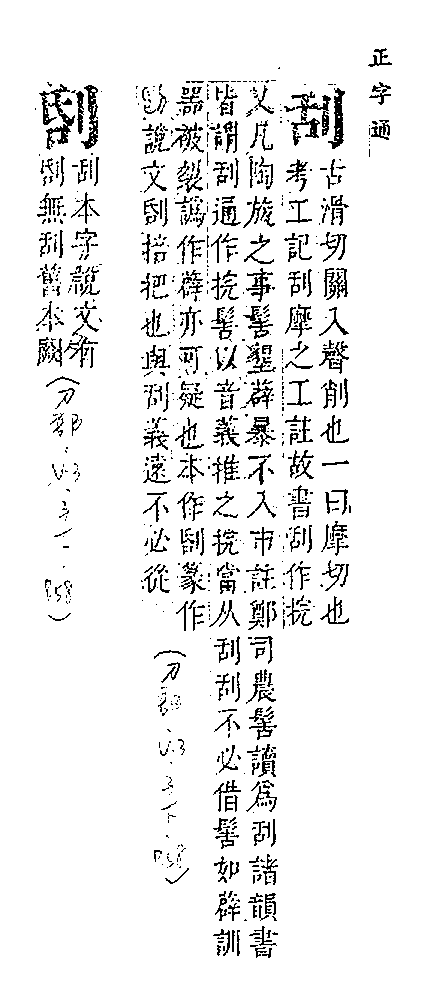 正字通
刮
古滑切關入聲削也一曰摩切也
考工記刮摩之工註故書刮作捖
又凡陶旊之事髺墾薜暴不入市註鄭司農髺讀爲刮諸韻書
皆謂刮通作捖髺以音義推之捖當从刮刮不必借髺如薜訓
器被裂譌作薜亦可疑也本作𠜜篆作
說文𠜜掊把也與刮義遠不必從
(刀部
下
p58)
𠜜
刮本字說文有
𠜜無刮舊本闕
(刀部
p58)